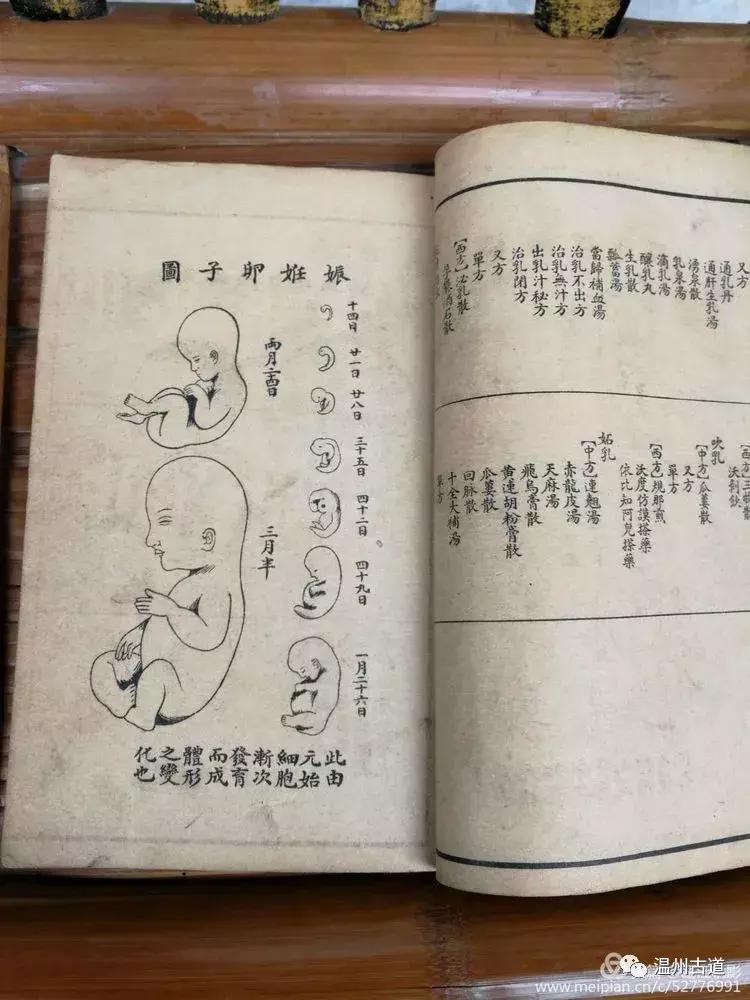 娠姙卵子圖
十四日
廿一日
廿八日
三十五日
四十二日
四十九日
一月二十六日
兩月二十四日
三月半
此由
元始
細胞
漸次
發育
而成
體形
之變
化也
又方
通乳丹
通肝生乳湯
湧泉散
乳泉湯
滴乳湯
釀乳丸
生乳散
瓢薺湯
當歸補血湯
治乳不出方
治乳無汁方
出乳汁秘方
治乳閉方
又方
單方
【西方】泌乳散
沃剝飲
吹乳
【中方】瓜蔞散
又方
單方
【西方】規那煎
沃度仿謨搽藥
依比知阿兒搽藥
妬乳
【中方】連翹湯
赤龍皮湯
天麻湯
飛烏膏散
黃連胡粉膏散
瓜蔞散
回脉散
十全大補湯
單方
温州古道
www.meipian.cn/c/52776991